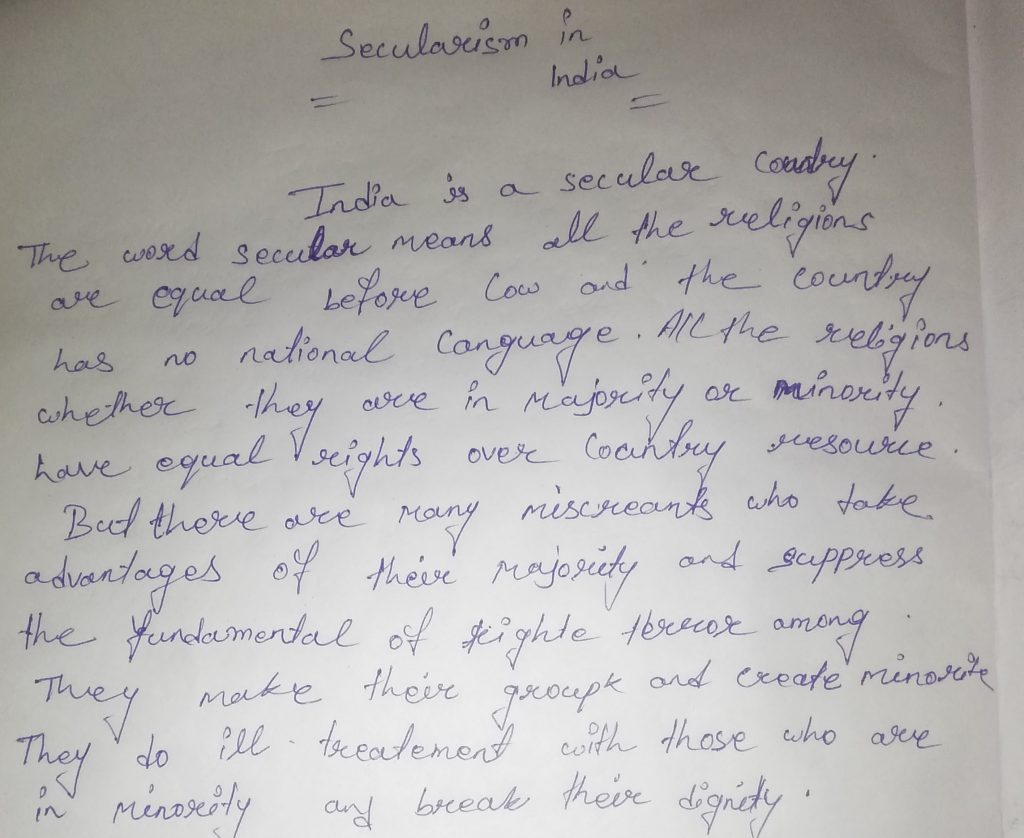 Secularism in
India
India is a secular country.
The word secular means all the religions
are equal before low and the country
has no national language. All the religions
whether they are in majority or minority.
have equal rights over country resource.
But there are many miscreants who take
advantages of their majority and suppress
the fundamental of righte terror among
They make their groupk and create minorite
They do ill treatement with those who are
in minority and break their dignity.